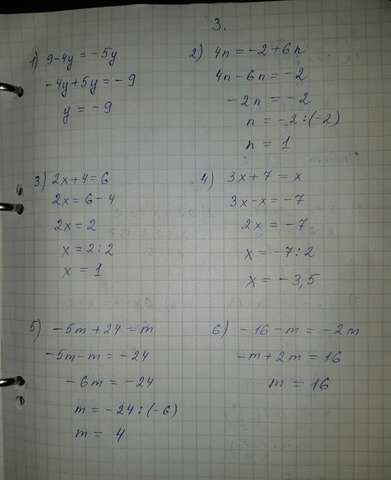 3.
1) 9-4y = -5y
-4y+5y = -9
y = -9
2) 4n = -2+6n
4n-6n = -2
-2n = -2
n = -2:(-2)
n = 1
3) 2x+4 = 6
2x = 6-4
2x = 2
x = 2:2
x = 1
4) 3x+7 = x
3x-x = -7
2x = -7
x = -7:2
x = -3,5
5) -5m+24 = m
-5m-m = -24
-6m = -24
m = -24:(-6)
m = 4
6) -16-m = -2m
-m+2m = 16
m = 16